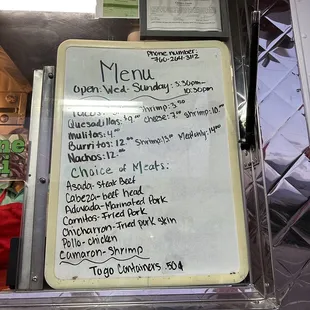 Phone number:
760-204-3112
Menu
open: Wed-Sunday: 3:30pm-
10:30pm
Tacos: Shrimp: 3.50
Quesadillas: 9.00 cheese: 7.00 Shrimp: 10.00
mulitas: 4.00
Burritos: 12.00 Shrimp: 13.00 Meat only: 14.00
Nachos: 12.00
Choice of Meats:
Asada- Steak Beef
Cabeza- beef head
Adovada- Marinated Pork
Carnitas- Fried Pork
Chicharron- Fried pork skin
Pollo- chicken
Camaron- Shrimp
To go Containers .50¢